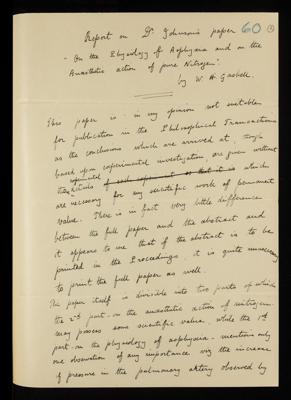 Report on Dr Johnson's paper 60
"On the Physiology of Asphyxia and on the
Anaesthetic action of pure Nitrogen".
by W. H. Gaskell.
This paper is in my opinion not suitable
for publication in the Philosophical Transactions
as the conclusions which are arrived at, though
based upon experimental investigation, are given without
the experimental details of such experiment as that it is which
are necessary for any scientific work of permanent
value. There is in fact very little difference
between the full paper and the abstract and
it appears to me that if the abstract is to be
printed in the Proceedings, it is quite unnecessary
to print the full paper as well.
The paper itself is divided into two parts of which
the 2nd part - on the anaesthetic action of nitrogen -
may possess some scientific value, while the 1st
part - on the physiology of asphyxia - mentions only
one observation of any importance viz the increase
of pressure in the pulmonary artery observed by